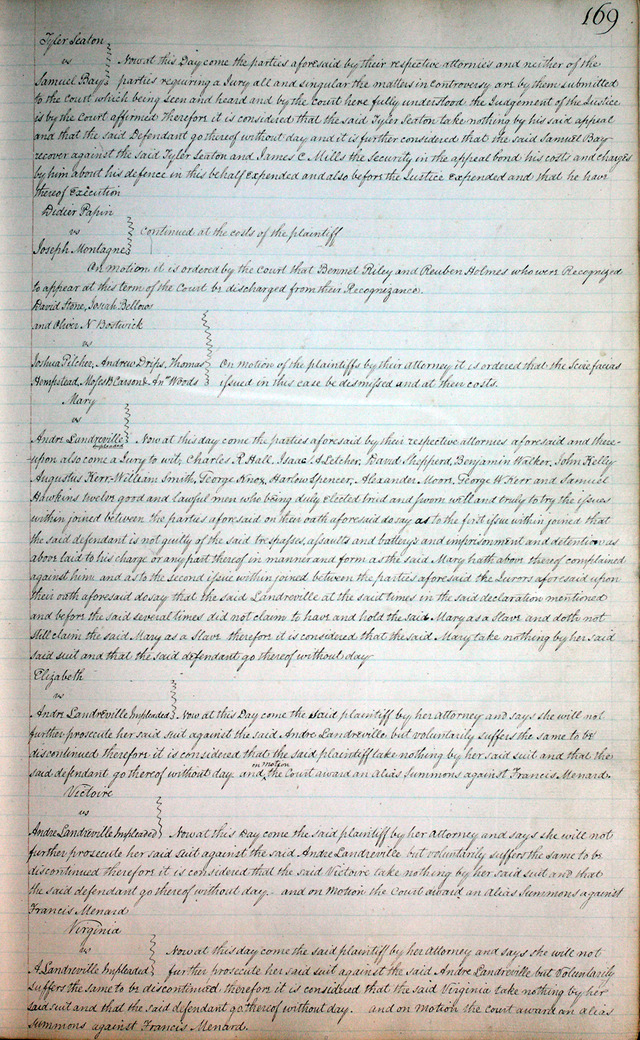 169
Tyler Seaton
vs
Samuel Bay
Now at this Day come the parties aforesaid by their respective attornies and neither of the
parties requiring a Jury all and singular the matters in controversy are by them submitted
to the Court which being seen and heard and by the Court here fully understood the Judgement of the Justice
is by the Court affirmed therefore it is considered that the said Tyler Seaton take nothing by his said appeal
and that the said Defendant go thereof without day and it is further considered that the said Samuel Bay
recover against the said Tyler Seaton and James C. Mills the Security in the appeal bond his costs and charges
by him about his defence in this behalf expended and also before the Justice Expended and that he have
thereof Execution
Didier Papin
vs
Joseph Montagne
Continued at the costs of the plaintiff
On motion it is ordered by the court that Bennet Riley and Reuben Holmes who were Recognized
to appear at this term of the Court be discharged from their Recognizance.
David Stone, Josiah Bellow
and Oliver N. Bostwick
vs
Joshua Pilcher, Andrew Drips, Thomas
Hempstead, Moses B Carson & An. Woods
On motion of the plaintiffs by their Attorney it is ordered that the Scire facias
issued in this case be dismissed and at their costs.
Mary
vs
Andre Landreville
Impleaded
Now at this day come the parties aforesaid by their respective attornies aforesaid and there-
-upon also come a Jury to wit, Charles R. Hall, Isaac A Letcher, David Shepperd, Benjamin Walker, John Kelly
Augustus Kerr William Smith, George Knox, Harlow Spencer, Alexander Moor, George W Kerr and Samuel
Hawkins twelve good and lawful men who being duly elected tried and sworn well and truly to try the issues
within joined between the parties aforesaid on their oath aforesaid do say as to the first issue within joined that
the said defendant is not guilty of the said trespasses, assaults and batterys and imprisonment and detention as
above laid to his charge or any part thereof in manner and form as the said Mary hath above thereof complained
against him and as to the second issue within joined between the parties aforesaid the Jurors aforesaid upon
their oath aforesaid do say that the said Landreville at the said times in the said declaration mentioned
and before the said several times did not claim to have and hold the said Mary as a Slave and doth not
still claim the said Mary as a Slave therefore it is considered that the said Mary take nothing by her said
said suit and that the said defendant go thereof without day
Elizabeth
vs
Andre Landreville Impleaded
Now at this Day come the said plaintiff by her attorney and says she will not
further prosecute her said suit against the said Andre Landreville but voluntarily suffers the same to be
discontinued therefore it is considered that the said plaintiff take nothing by her said suit and that the
said defendant go thereof without day and on motion the Court award an alias Summons against Francis Menard.
Victoire
vs
Andre Landreville Impleaded
Now at this Day come the said plaintiff by her Attorney and says she will not
further prosecute her said Suit against the said Andre Landreville but voluntarily suffers the same to be
discontinued therefore it is considered that the said Victoire take nothing by her said suit and that
the said defendant go thereof without day. and on motion the Court award an Alias Summons against
Francis Menard
Virginia
vs
A Landreville Impleaded
Now at this day come the said plaintiff by her Attorney and says she will not
further prosecute her said suit against the said Andre Landreville but Voluntarily
Suffers the same to be discontinued therefore it is considered that the said Virginia take nothing by her
said suit and that the said defendant go thereof without day. And on motion the court award an alias
Summons against Francis Menard.